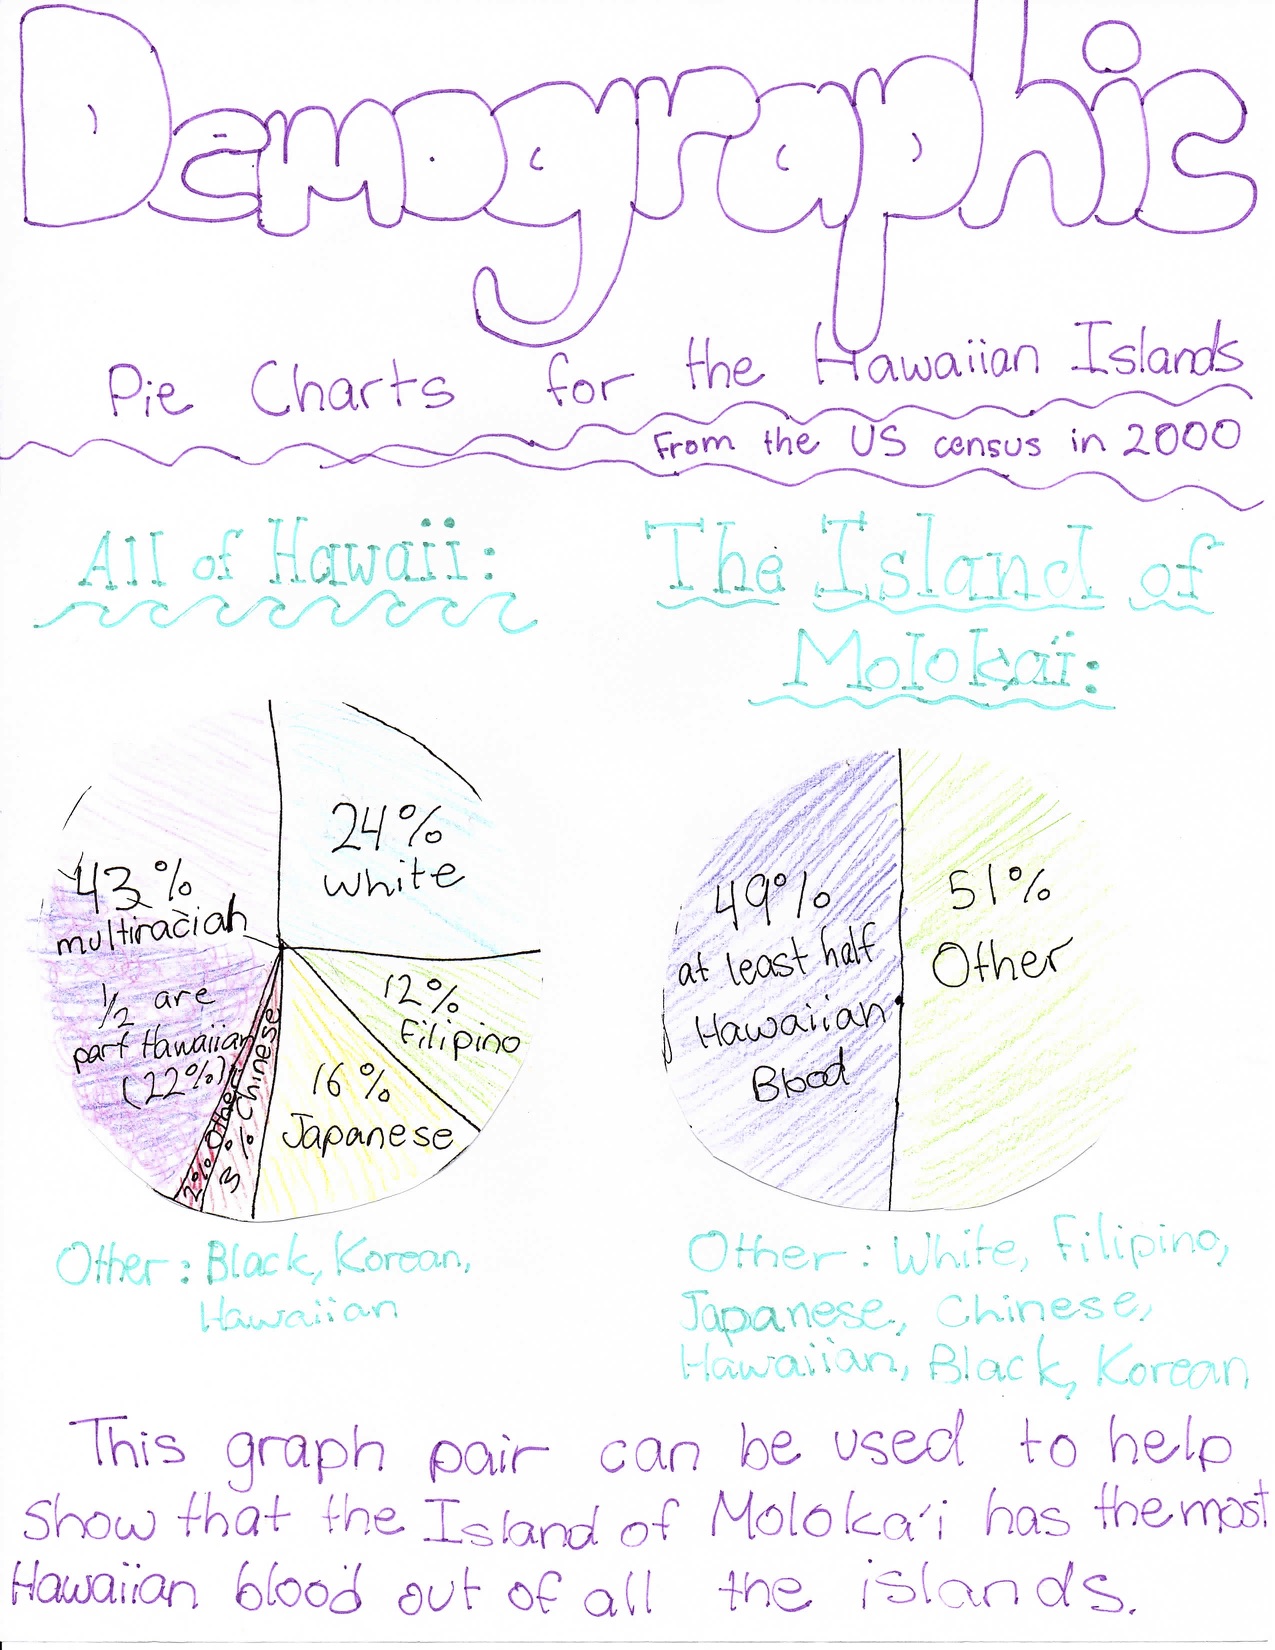 Demographic
Pie Charts for the Hawaiian Islands
From the US census in 2000
All of Hawaii:
43%
multiracial
1/2 are
part Hawaiian
(22%)
24%
white
12%
Filipino
16%
Japanese
3% Chinese
2% Other
Other: Black, Korean,
Hawaiian
The Island of
Moloka'i:
49%
at least half
Hawaiian
Blood
51%
Other
Other: White, Filipino,
Japanese, Chinese,
Hawaiian, Black, Korean
This graph pair can be used to help
show that the Island of Moloka'i has the most
Hawaiian blood out of all the islands.